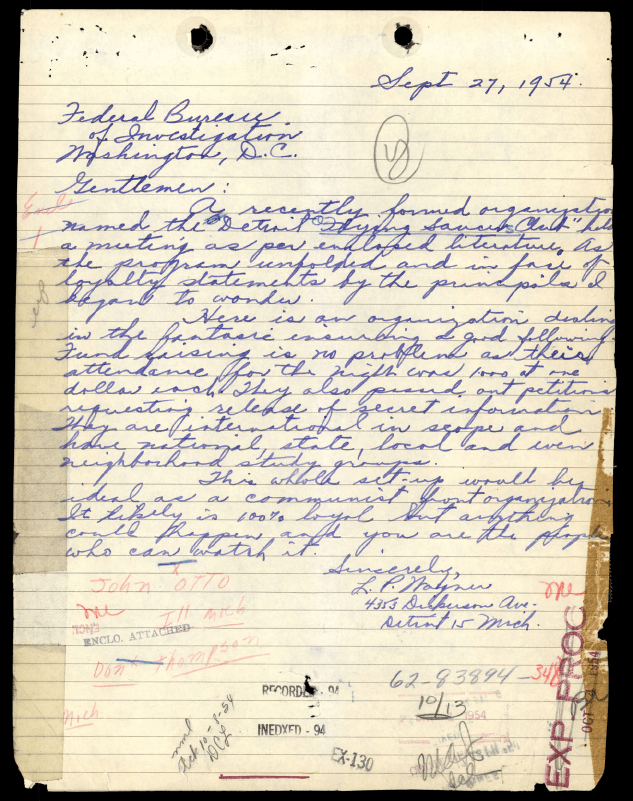 Sept 27, 1954.
Federal Bureau
of Investigation
Washington, D.C.
Gentlemen:
A recently formed organization
named the "Detroit Flying Saucer Club" held
a meeting as per enclosed literature. As
the program unfolded and in face of
loyalty statements by the principals I
began to wonder.
Here is an organization dealing
in the fantasic insureing a good following.
Fund raising is no problem as their
attendance for the night was 1000 at one
dollar each. They also passed out petitions
requesting release of secret information
They are international in scope and
have national, state, local and even
neighborhood study groups.
This whole set-up would be
ideal as a communist front organization.
It likely is 100% loyal but anything
could happen and you are the people
who can watch it.
Sincerely,
L. P. Wagner
4353 Dickerson Ave.
Detroit 15 Mich.
Encl
1
John OTTO
Ill Mich
ENCL
ENCLO. ATTACHED
Don Thompson
Mich
62-83894-348
RECORDED - 94
10/13
1954
INEDXED - 94
EX-130
Ack 10-8-54
DCL
EXP PROC
OCT 1954